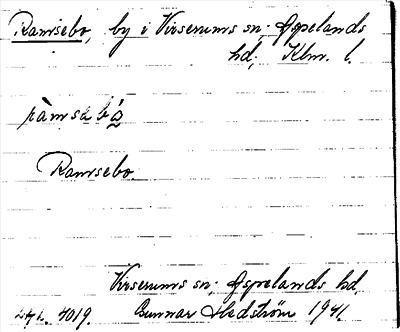 Ramsebo, by i Virserums sn; Aspelands
hd; Klm. l.
ràmsabó
Ramsebo.
Virserums sn; Aspelands hd.
4019. Gunnar Hedström 1941